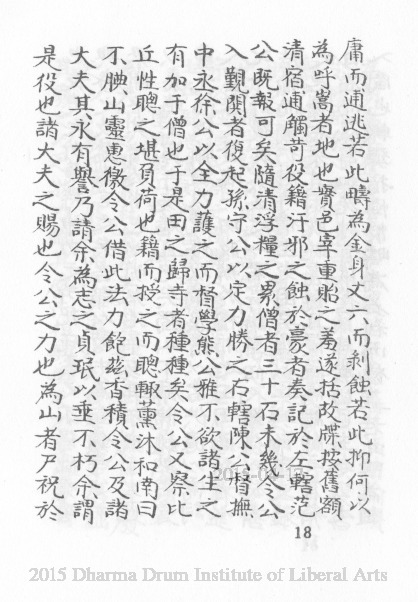 庸而逋逃若此疇為金身丈六而剥蝕若此抑何以
為呼嵩者地也實邑宰重貽之羞遂括故牒按舊額
清宿逋觸苛役籍汙邪之蝕於豪者奏記於左轄范
公既報可矣隨清浮糧之累僧者三十石未幾令公
入覲閧者復起孫守公以定力勝之右轄陳公督撫
中丞徐公以全力護之而督學熊公雅不欲諸生之
有加于僧也于是田之歸寺者種種矣令公又察比
丘性聰之堪負荷也籍而授之而聰輒薰沐和南曰
不腆山靈惠徼令公借此法力飽茲香積令公及諸
大夫其永有譽乃請余為志之貞珉以垂不朽余謂
是役也諸大夫之賜也令公之力也為山者尸祝於
18
2015 Dharma Drum Institute of Liberal Arts